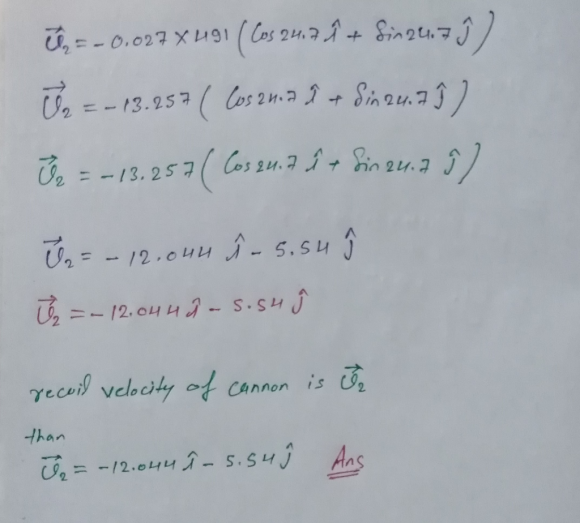 v⃗₂ = - 0.027 × 491 ( Cos 24.7 î + Sin 24.7 ĵ )
v⃗₂ = - 13.257 ( Cos 24.7 î + Sin 24.7 ĵ )
v⃗₂ = - 13.257 ( Cos 24.7 î + Sin 24.7 ĵ )
v⃗₂ = - 12.044 î - 5.54 ĵ
v⃗₂ = - 12.044 î - 5.54 ĵ
recoil velocity of cannon is v⃗₂
than
v⃗₂ = - 12.044 î - 5.54 ĵ Ans